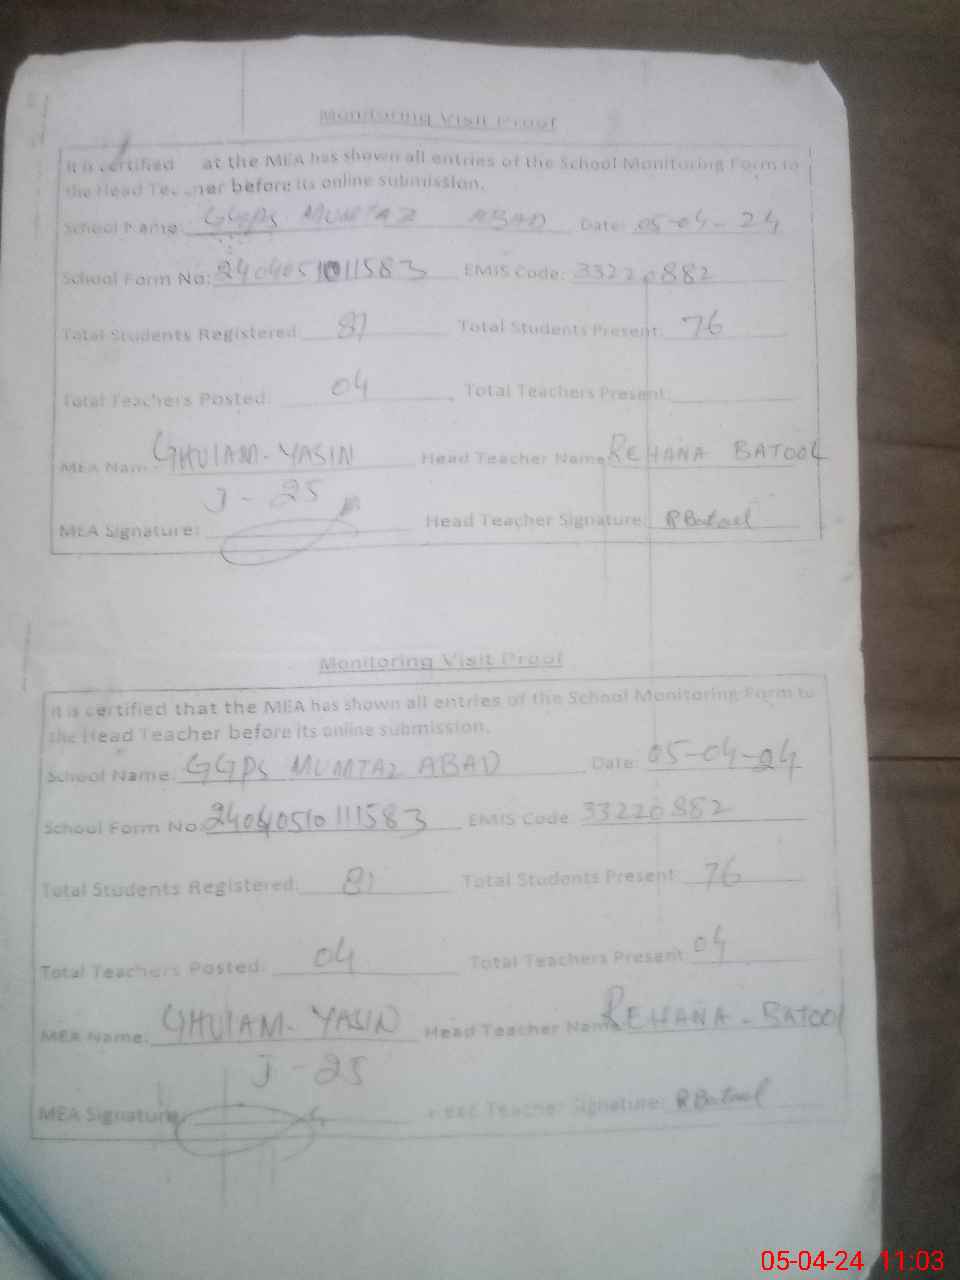 Monitoring Visit Proof
It is certified at the MEA has shown all entries of the School Monitoring Form to
the Head Te ner before its online submission.
School Name: GGPS MUMTAZ ABAD Date: 05-04-24
School Form No: 2404051011583 EMIS Code: 33220882
Total Students Registered: 81 Total Students Present: 76
Total Teachers Posted: 04 Total Teachers Present:
MEA Nam GHULAM-YASIN Head Teacher Name REHANA BATOOL
J-25
MEA Signature: Head Teacher Signature: RBatool
Monitoring Visit Proof
It is certified that the MEA has shown all entries of the School Monitoring Form to
the Head Teacher before its online submission.
School Name: GGPS MUMTAZ ABAD Date: 05-04-24
School Form No: 24040510111583 EMIS Code: 33220882
Total Students Registered: 81 Total Students Present: 76
Total Teachers Posted: 04 Total Teachers Present: 04
MEA Name: GHULAM-YASIN Head Teacher Name REHANA-BATOOL
J-25
MEA Signature: Teacher Signature: RBatool
05-04-24 11:03